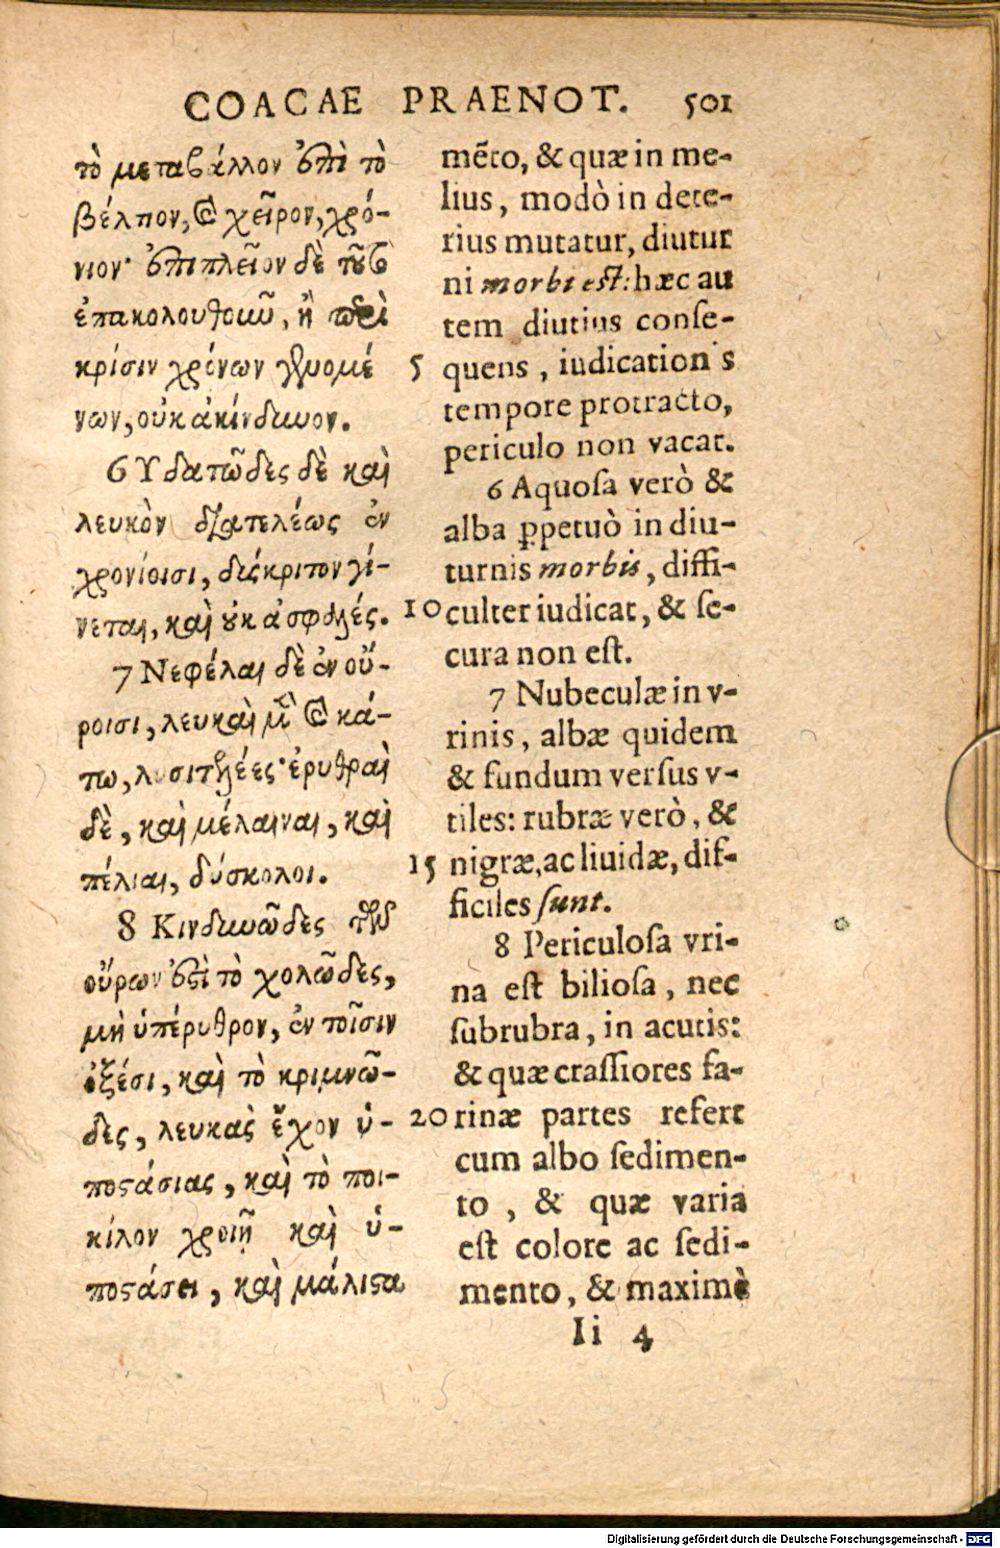 COACAE PRAENOT. 501
τὸ μεταβάλλον ἐπὶ τὸ
βέλτιον, καὶ χεῖρον, χρό-
νιον· ἐπιπλεῖον δὲ τοῦτο
ἐπακολουθοῦν, ἢ περὶ
κρίσιν χρόνων γενομέ
νων, οὐκ ἀκίνδυνον.
6 Υδατῶδες δὲ καὶ
λευκὸν διατελέως ἐν
χρονίοισι, δύςκριτον γί-
νεται, καὶ οὐκ ἀσφαλές.
7 Νεφέλαι δὲ ἐν οὔ-
ροισι, λευκαὶ μὲν καὶ κά-
τω, λυσιτελέες· ἐρυθραὶ
δὲ, καὶ μέλαιναι, καὶ
πέλιαι, δύσκολοι.
8 Κινδυνῶδες τῶν δ
οὔρων ἐστὶ τὸ χολῶδες,
μὴ ὑπέρυθρον, ἐν τοῖσιν
ὀξέσι, καὶ τὸ κριμνῶ-
δες, λευκὰς ἔχον ὑ-
ποστάσιας, καὶ τὸ ποι-
κίλον χροιῇ καὶ ὑ-
ποστάσει, καὶ μάλιστα
5
10
15
20
mẽto, & quæ in me-
lius, modò in dete-
rius mutatur, diutur
ni morbi est: hæc au
tem diutius conse-
quens, iudicationis
tempore protracto,
periculo non vacat.
6 Aquosa verò &
alba ꝑpetuò in diu-
turnis morbis, diffi-
culter iudicat, & se-
cura non est.
7 Nubeculæ in v-
rinis, albæ quidem
& fundum versus v-
tiles: rubræ verò, &
nigræ, ac liuidæ, dif-
ficiles sunt.
8 Periculosa vri-
na est biliosa, nec
subrubra, in acutis:
& quæ crassiores fa-
rinæ partes refert
cum albo sedimen-
to, & quæ varia
est colore ac sedi-
mento, & maximè
Ii 4
Digitalisierung gefördert durch die Deutsche Forschungsgemeinschaft - DFG